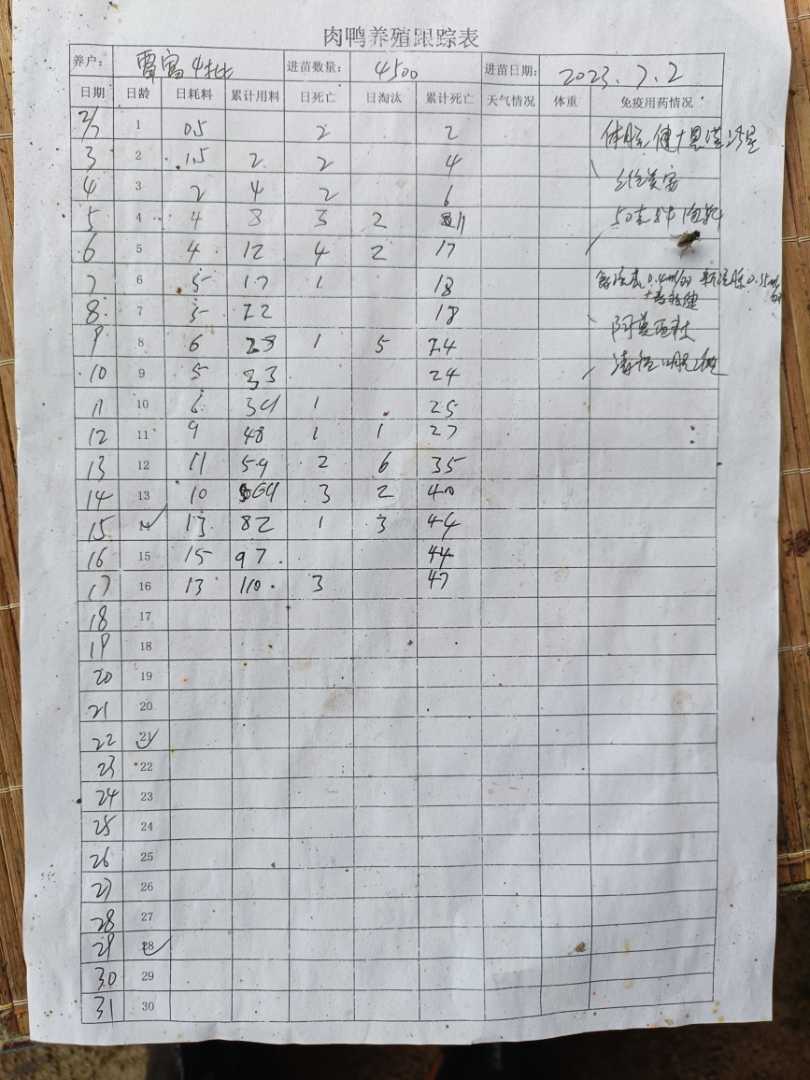 肉鸭养殖跟踪表
养户： 雷富4批 进苗数量： 4500 进苗日期： 2023.7.2
日期 日龄 日耗料 累计用料 日死亡 日淘汰 累计死亡 天气情况 体重 免疫用药情况
2/7 1 0.5 2 2
3 2 1.5 2 2 4
4 3 2 4 2 6
5 4 4 8 3 2 11
6 5 4 12 4 2 17
7 6 5 17 1 18
8 7 5 22 18
9 8 6 28 1 5 24
10 9 5 33 24
11 10 6 39 1 25
12 11 9 48 1 1 27
13 12 11 59 2 6 35
14 13 10 69 3 2 40
15 14 13 82 1 3 44
16 15 15 97 44
17 16 13 110 3 47
18 17
19 18
20 19
21 20
22 21
23 22
24 23
25 24
26 25
27 26
28 27
29 28
30 29
31 30